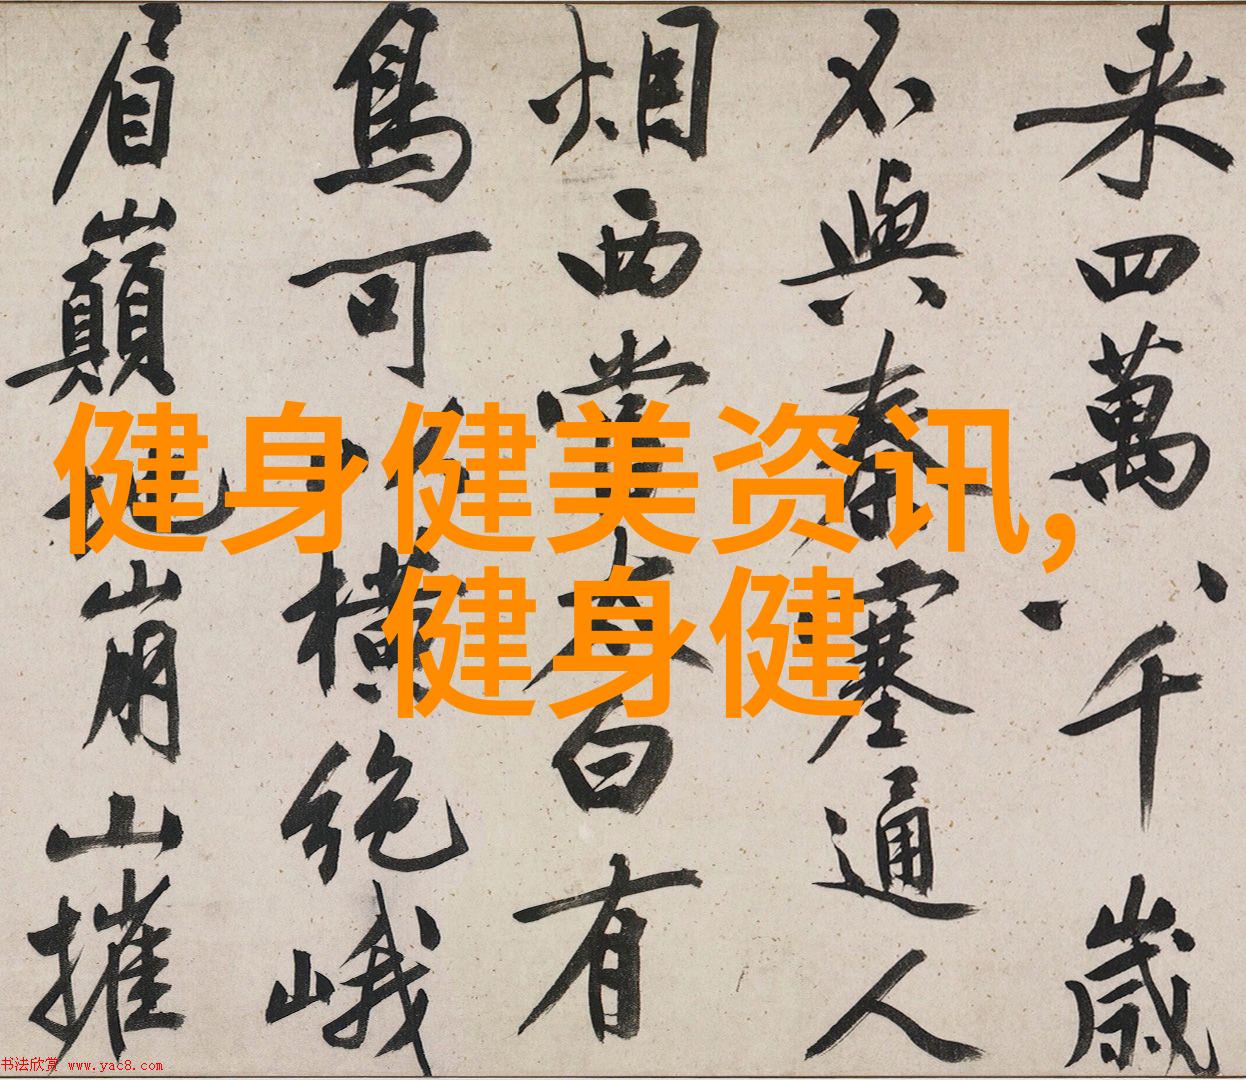 来四萬八千歲
不與秦塞通人
烟西當太白有
鳥可以橫絕峨
眉巔地崩山摧
健身健美资讯,
健身健
书法欣赏 www.yac8.com